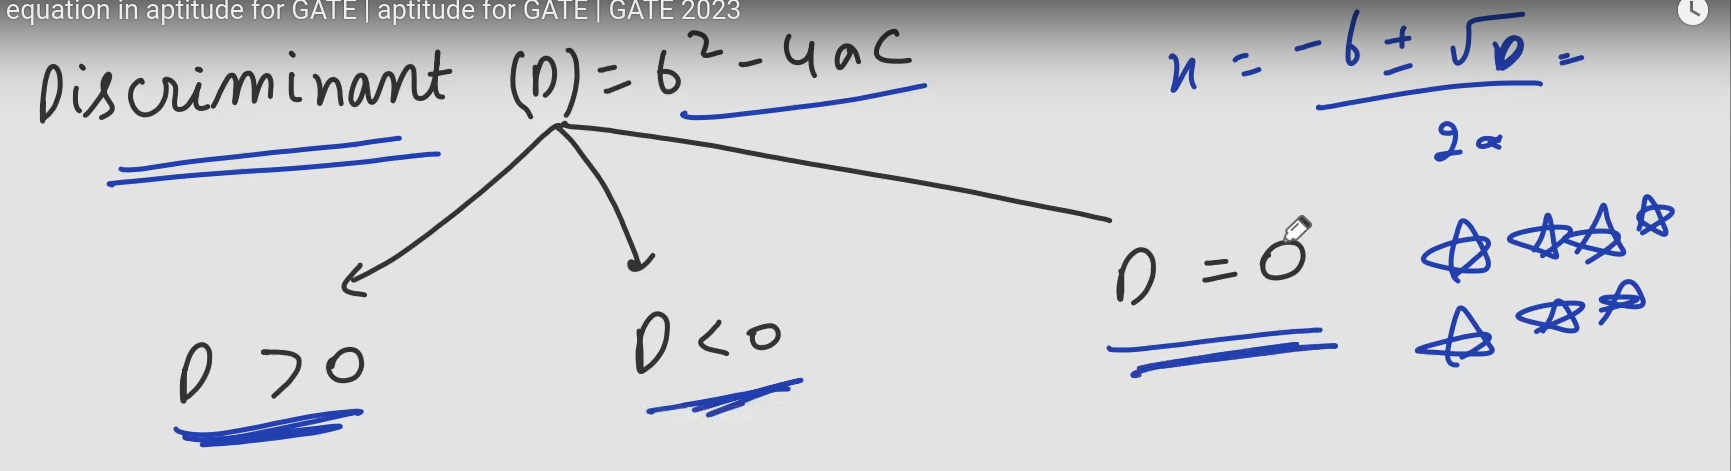 equation in aptitude for GATE | aptitude for GATE | GATE 2023
Discriminant (D) = b² - 4ac
x = -b ± √D =
2a
D > 0
D < 0
D = 0